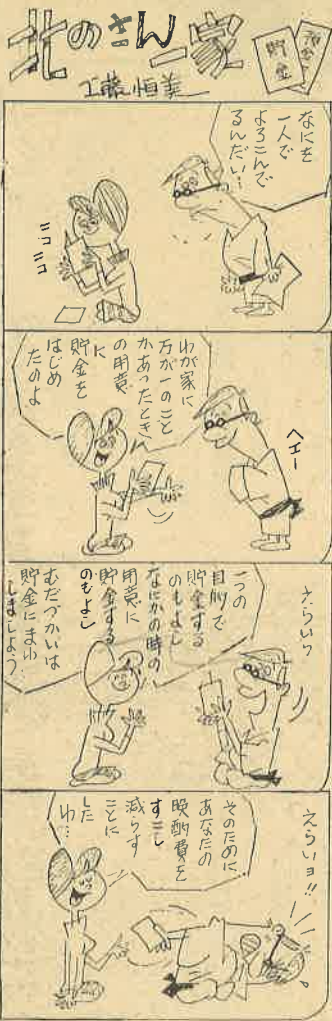 北のさん一家
貯金
貯金
工藤恒美
なにを
一人で
よろこんで
るんだい…
ニコ
ニコ
わが家に
万が一のこと
があったとき
の用意
に
貯金を
はじめ
たのよ
ヘエー
えらいッ
一つの
目的で
貯金する
のもよし
なにかの時の
用意に
貯金する
のもよし
むだづかいは
貯金にまわ
しましょう
えらいョ!!
そのために
あなたの
晩酌費を
すこし
減らす
ことに
した
わ…